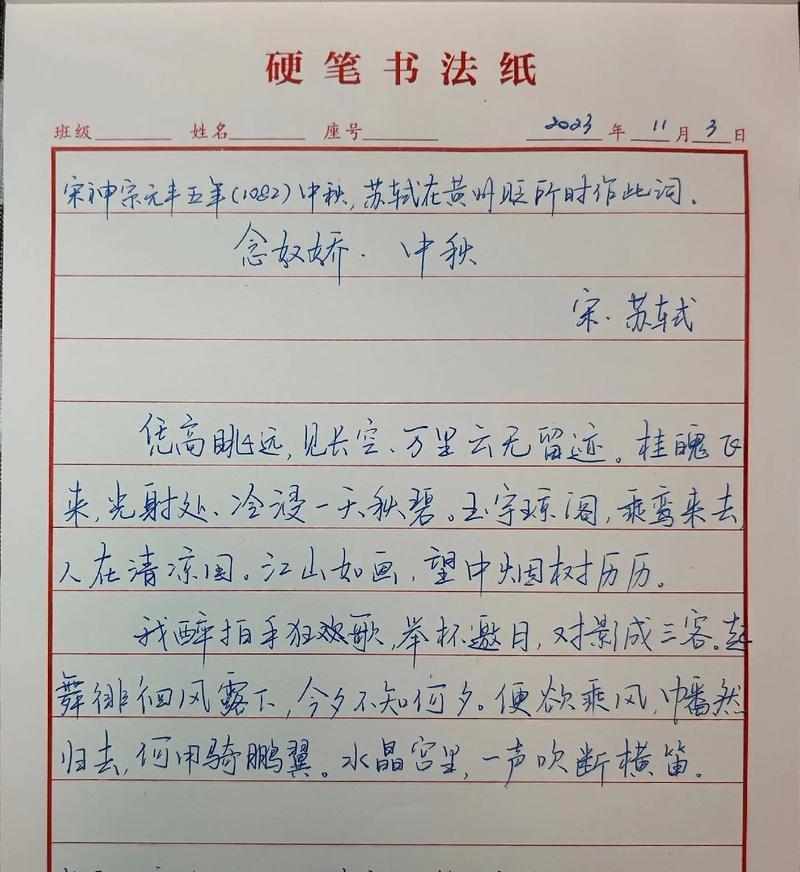 硬笔书法纸
班级 姓名 座号 2023年11月3日
宋神宗元丰五年(1082)中秋,苏轼在黄州贬所时作此词。
念奴娇·中秋
宋·苏轼
凭高眺远,见长空、万里云无留迹。桂魄飞
来,光射处、冷浸一天秋碧。玉宇琼阁,乘鸾来去,
人在清凉国。江山如画,望中烟树历历。
我醉拍手狂歌,举杯邀月,对影成三客。起
舞徘徊风露下,今夕不知何夕。便欲乘风,幡然
归去,何用骑鹏翼。水晶宫里,一声吹断横笛。